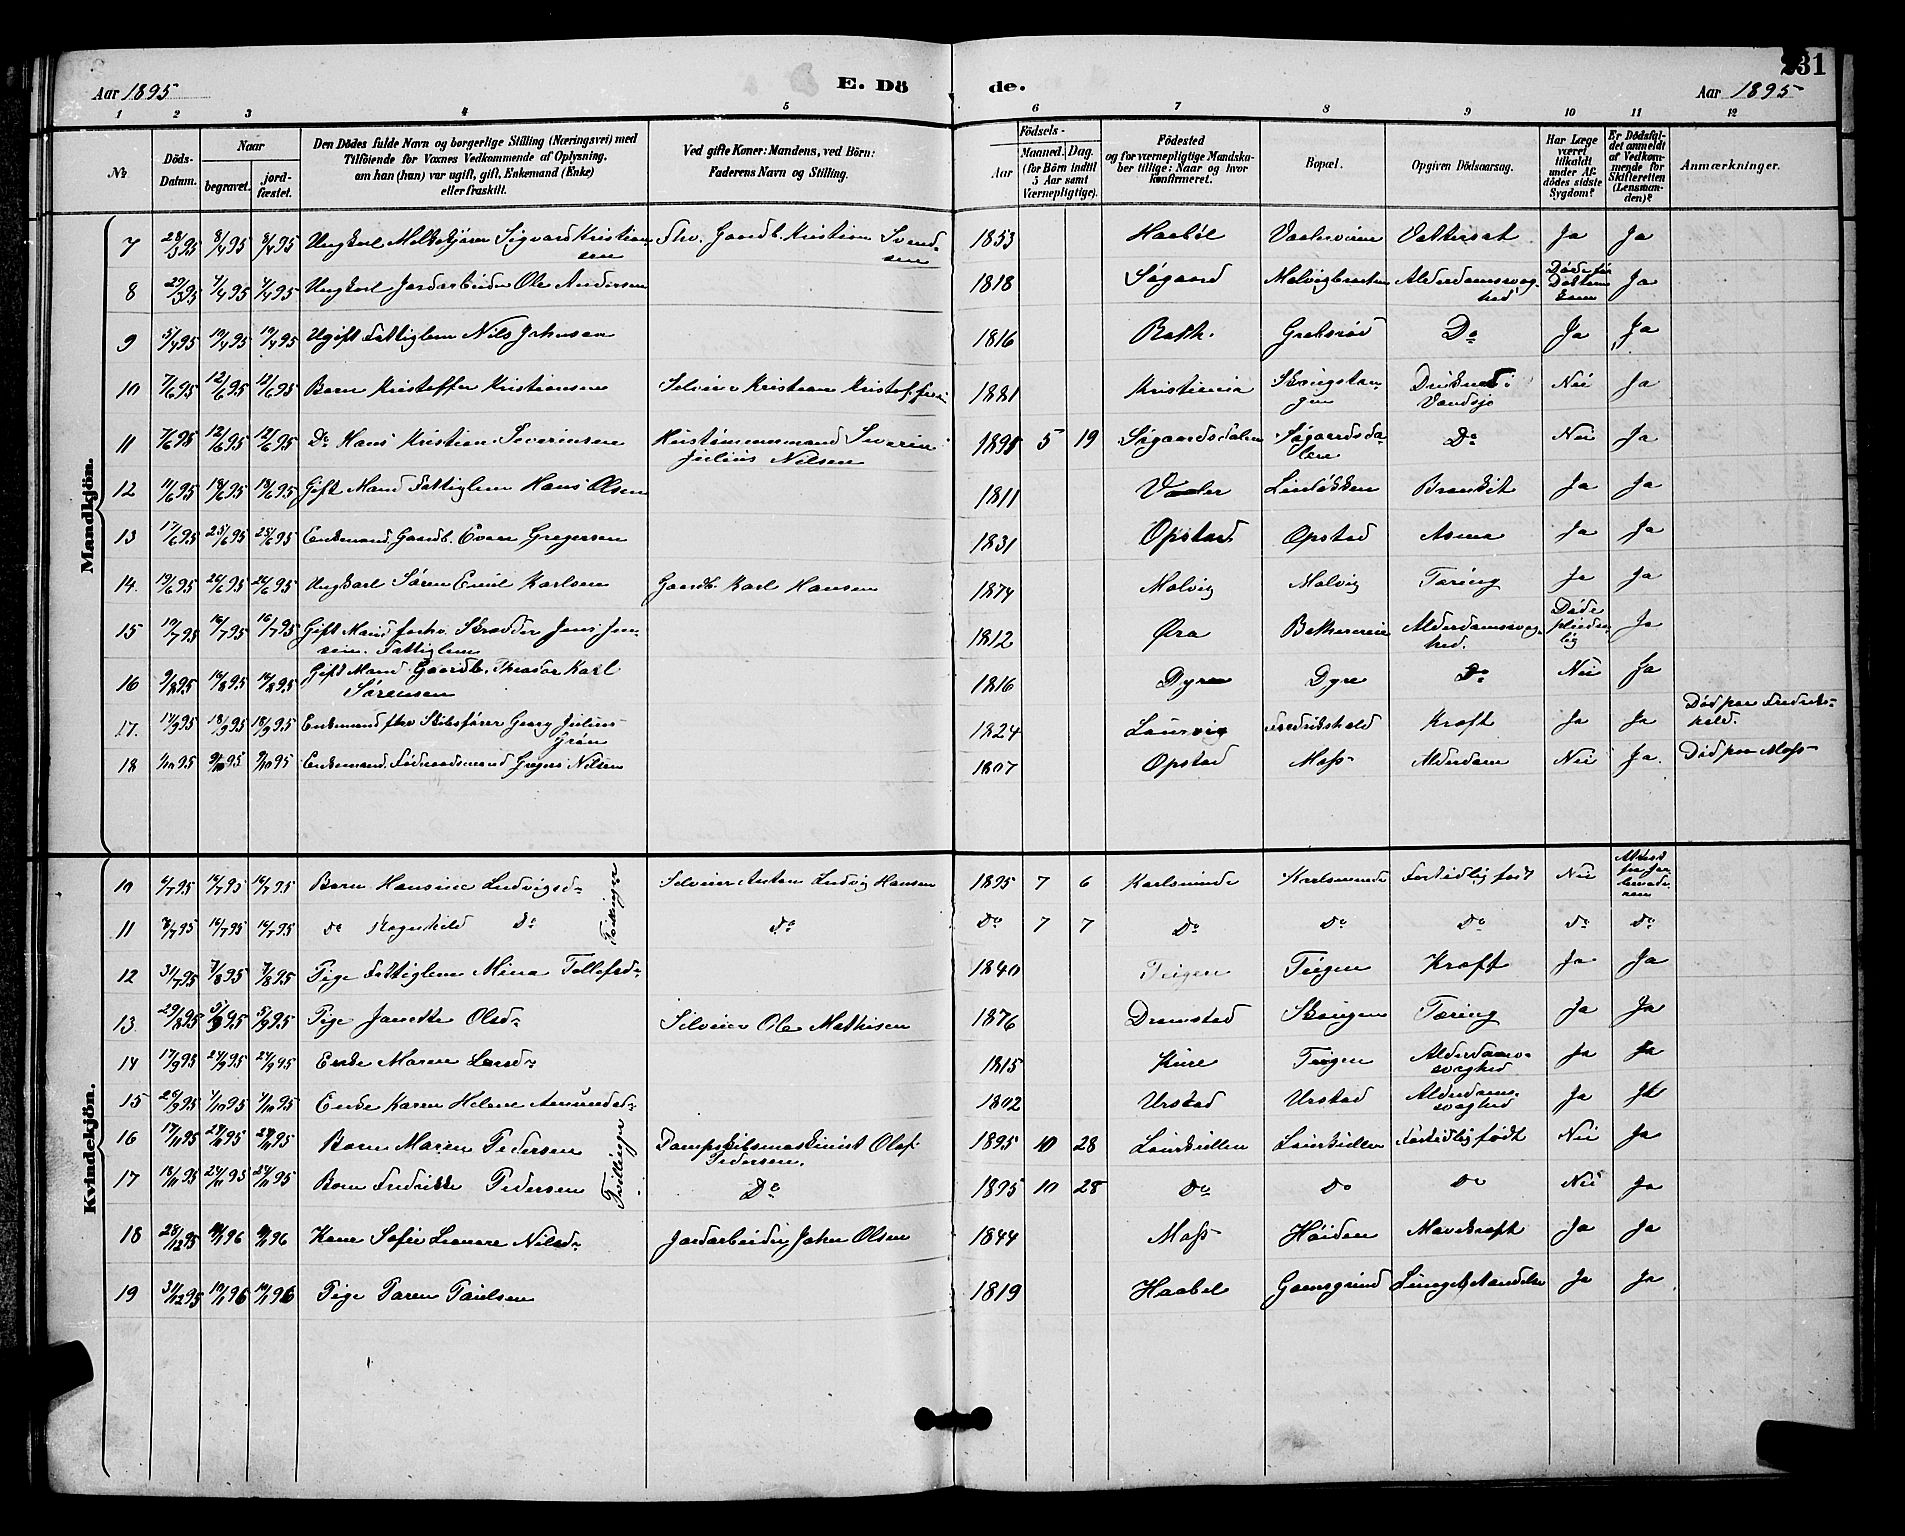 Aar 1895 E. Dö de. Aar 1895 231
1 2 3 4 5 6 7 8 9 10 11 12
№ Döds-Datum. Naar begravet. jord-fæstet. Den Dödes fulde Navn og borgerlige Stilling (Næringsvei) med Tilföiende for Voxnes Vedkommende af Oplysning, om han (hun) var ugift, gift, Enkemand (Enke) eller fraskilt. Ved gifte Koner: Mandens, ved Börn: Faderens Navn og Stilling. Födsels- Aar Maaned. Dag. (for Börn indtil 5 Aar samt Værnepligtige). Födested og for værnepligtige Mandskaber tillige: Naar og hvor konfirmeret. Bopæl. Opgiven Dödsaarsag. Har Læge været tilkaldt under Afdödes sidste Sygdom? Er Dödsfaldet anmeldt af Vedkommende for Skifteretten (Lensmanden)? Anmærkninger.
Mandkjön.
7 28/3 95 8/4 95 8/4 95 Ungkarl Sigvard Kristiansen Fhv. Gaardb. Kristian Svendsen 1853 Haabøl Vattersot Ja Ja
8 29/3 95 4/4 95 4/4 95 Ungkarl Jordarbeider Ole Andersen 1818 Søgaard Malvigbraaten Alderdomssvaghed Døde før Doktoren kom Ja
9 5/4 95 19/4 95 19/4 95 Ugift Fattiglem Nils Johnsen 1816 Bakk. Greksrød Do Ja Ja
10 7/6 95 12/6 95 12/6 95 Barn Kristoffer Kristiansen Selveier Kristian Kristoffersen 1881 Kristiania Skougstangen Druknet i Vandsjø Nei Ja
11 7/6 95 12/6 95 12/6 95 Do Hans Kristian Severinsen Hustømmermand Severin Julius Nilsen 1891 5 19 Søgaardsdalen Søgaardsdalen Do Nei Ja
12 11/6 95 18/6 95 18/6 95 Gift Mand Fattiglem Hans Olsen 1811 Vaaler Linløkken Bronkit Ja Ja
13 17/6 95 25/6 95 25/6 95 Enkemand Gaardb. Even Gregersen 1831 Opstad Opstad Asma Ja Ja
14 19/6 95 26/6 95 26/6 95 Ungkarl Søren Emil Karlsen Gaardb. Karl Hansen 1874 Malvig Malvig Tæring Ja Ja
15 10/7 95 16/7 95 16/7 95 Gift Mand forhv. Skrædder Jens Jensen. Fattiglem 1812 Øra Bakkereie Alderdomssvaghed. Døde pludselig Ja
16 9/8 95 16/8 95 16/8 95 Gift Mand Gaardb. Theodor Karl Sørensen 1816 Dyre Dyre Do Nei Ja
17. 14/9 95 18/9 95 18/9 95 Enkemand fhv Skibsfører Georg Julius Grøn 1824 Laurvig Fredrikshald Kræft Ja Ja Død paa Fredrikshald.
18 1/10 95 9/10 95 9/10 95 Enkemand Føderaadsmand Gregers Nilsen 1807 Opstad Moss Alderdom Nei Ja. Død paa Moss
Kvindekjön.
10 6/7 95 16/7 95 16/7 95 Barn Hansine Ludvigsd. Tvillinger Selveier Anton Ludvig Hansen 1895 7 6 Karlsminde Karlsminde Fortidlig født Nei
11 8/7 95 16/7 95 16/7 95 Do Ragnhild Do Do Do 7 7 Do Do Do Do Do
12 31/7 95 7/8 95 7/8 95 Pige Fattiglem Mina Tollefsd. 1840 Teigen Teigen Kræft Ja Ja
13. 29/8 95 5/9 95 5/9 95 Pige Janette Olsd. Selveier Ole Mathisen 1876 Dramstad Skougen Tæring Ja Ja
14 17/9 95 24/9 95 24/9 95 Enke Maren Larsd. 1815 Kure Teigen Alderdomssvaghed Ja Ja
15 26/9 95 4/10 95 4/10 95 Enke Karen Helene Amundsd. 1802 Urstad Urstad Alderdomssvaghed Ja Ja
16 17/11 95 24/11 95 24/11 95 Barn Maren Pedersen Tvillinger Dampskibsmaskinist Olaf Pedersen. 1895 10 28 Lairskillen Lairskillen Fortidlig født Nei Ja
17 18/11 95 24/11 95 24/11 95 Barn Fredrikke Pedersen Do 1895 10 28 Do Do Do Nei Ja
18 28/12 95 96 96 Kone Sofie Leonore Nilsd. Jordarbeider Johan Olsen 1844 Moss Høiden Mavekræft Ja Ja
19 31/12 95 10/1 96 10/1 96 Pige Karen Paulsen 1819 Haabøl Gaasegrund Lungebetændelse Ja Ja